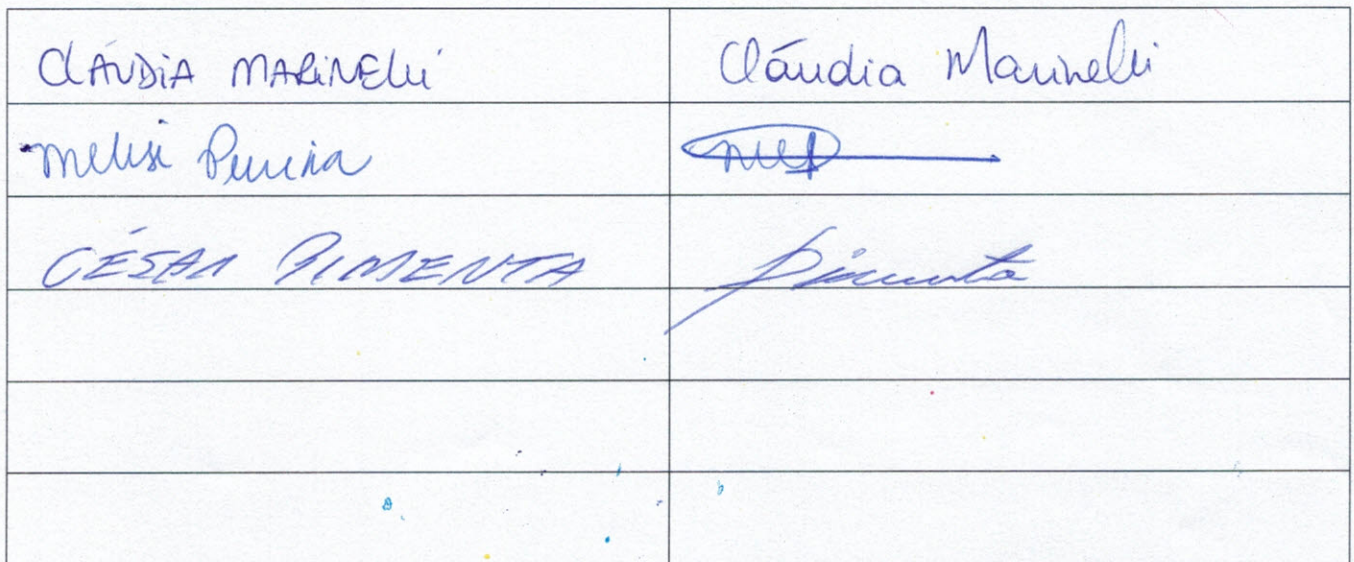 CLÁUDIA MARINELLI Cláudia Marinelli
Melise Pereira
CÉSAR PIMENTA Pimenta